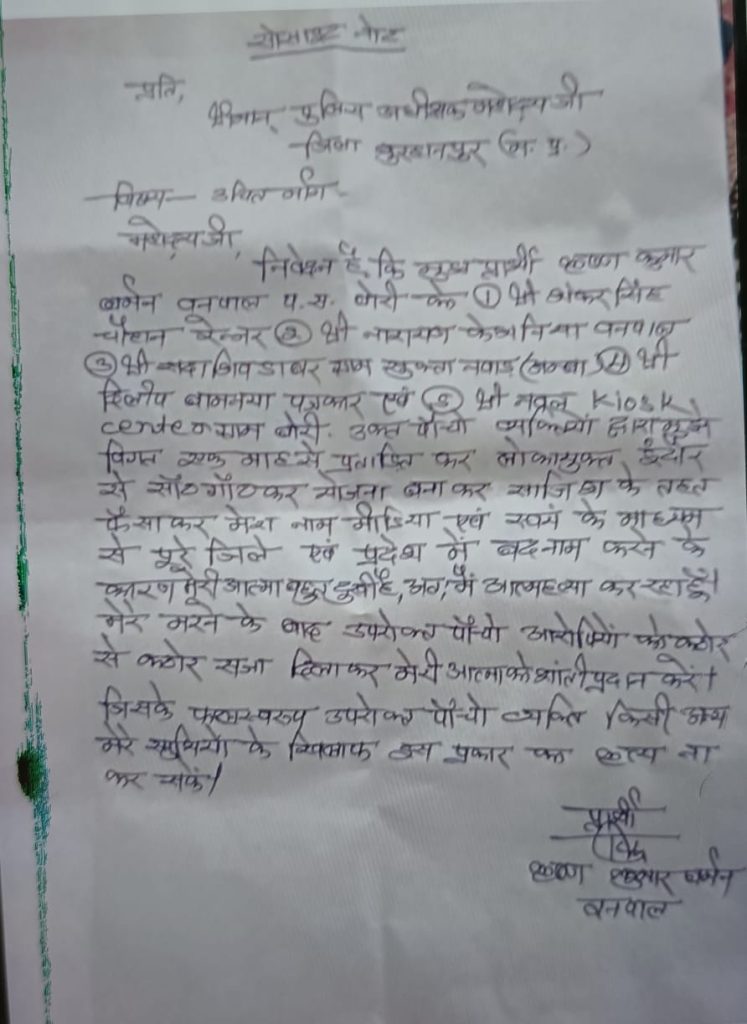 सोसाइट नोट
प्रति,
श्रीमान् पुलिस अधीक्षक महोदय जी
जिला बुरहानपुर (म. प्र.)
विषय- उचित मांग-
महोदय जी,
निवेदन है, कि मुझ प्रार्थी कृष्ण कुमार
बर्मन वनपाल प.स. बोरी के ① श्री शंकर सिंह
चौहान रेन्जर ② श्री नारायण केअनिया वनपाल
③ श्री सदाशिव डाबर ग्राम सुक्ता नवाड़ ④ श्री
दिलीप बामनया पत्रकार एवं ⑤ श्री नवल Kiosk
center ग्राम बोरी. उक्त पाँचो व्यक्तियों द्वारा मुझे
विगत एक माह से प्रताड़ित कर लोकायुक्त इंदौर
से साँठ गाँठ कर योजना बना कर साजिश के तहत
फँसा कर मेरा नाम मीडिया एवं स्वयं के माध्यम
से पूरे जिले एवं प्रदेश में बदनाम करने के
कारण मेरी आत्मा बहुत दुखी है, अतः मैं आत्महत्या कर रहा हूँ।
मेरे मरने के बाद उपरोक्त पाँचो आरोपियों को कठोर
से कठोर सजा दिलाकर मेरी आत्मा को शांती प्रदान करें।
जिसके फलस्वरूप उपरोक्त पाँचो व्यक्ति किसी अन्य
मेरे साथियों के खिलाफ इस प्रकार का कृत्य ना
कर सकें।
प्रार्थी
कृष्ण कुमार बर्मन
वनपाल